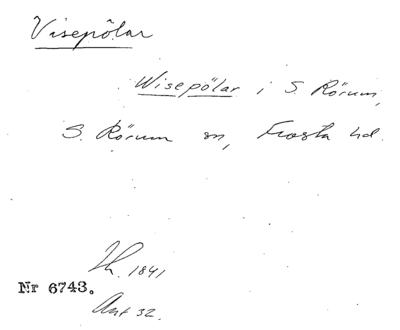 Visepölar
Wisepölar i S. Rörum,
S. Rörum sn, Frosta hd.
Lh. 1841
Nr 6743.
Ant 32.